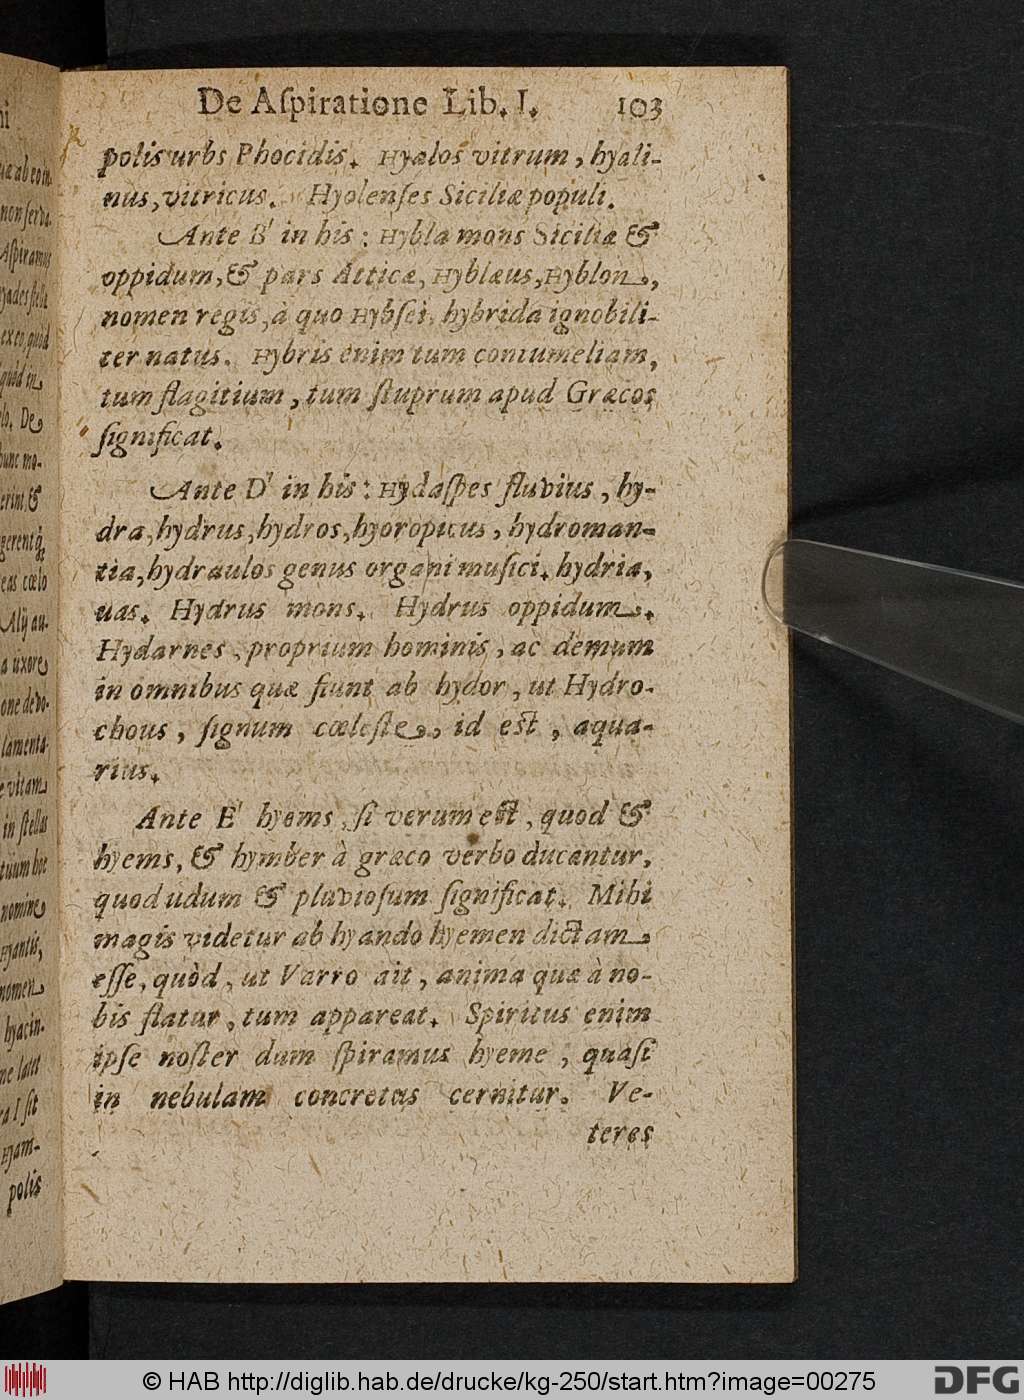 De Aſpiratione Lib. I. 103
polis urbs Phocidis. Hyalos vitrum, hyali-
nus, vitricus. Hyolenſes Siciliæ populi.
Ante B' in his: Hybla mons Siciliæ &
oppidum, & pars Atticæ, Hyblæus, Hyblon,
nomen regis, à quo Hybſei, hybrida ignobili-
ter natus. Hybris enim tum contumeliam,
tum flagitium, tum ſtuprum apud Græcos
ſignificat.
Ante D' in his: Hydaſpes fluvius, hy-
dra, hydrus, hydros, hyoropicus, hydroman-
tia, hydraulos genus organi muſici. hydria,
uas. Hydrus mons. Hydrus oppidum.
Hydarnes, proprium hominis, ac demum
in omnibus quæ fiunt ab hydor, ut Hydro-
chous, ſignum cœleſte, id eſt, aqua-
rius.
Ante E' hyems, ſi verum eſt, quod &
hyems, & hymber à græco verbo ducantur,
quod udum & pluvioſum ſignificat. Mihi
magis videtur ab hyando hyemen dictam
eſſe, quòd, ut Varro ait, anima quæ à no-
bis flatur, tum appareat. Spiritus enim
ipſe noſter dum ſpiramus hyeme, quaſi
in nebulam concretus cernitur. Ve-
teres
uæ ab eo in-
non ſerva-
Aſpiramus
yades ſtellæ
ex eo, quòd
quòd in
lo. De
hunc mo-
erint, &
gerent q;
eas cœlo
Alij au-
a uxore
one devo-
lamenta-
e vitam
in ſtellas
tuum hoc
nomine
Hyantis,
nomen
hyacin-
ra I ſit
Hyam-
polis
© HAB http://diglib.hab.de/drucke/kg-250/start.htm?image=00275
DFG